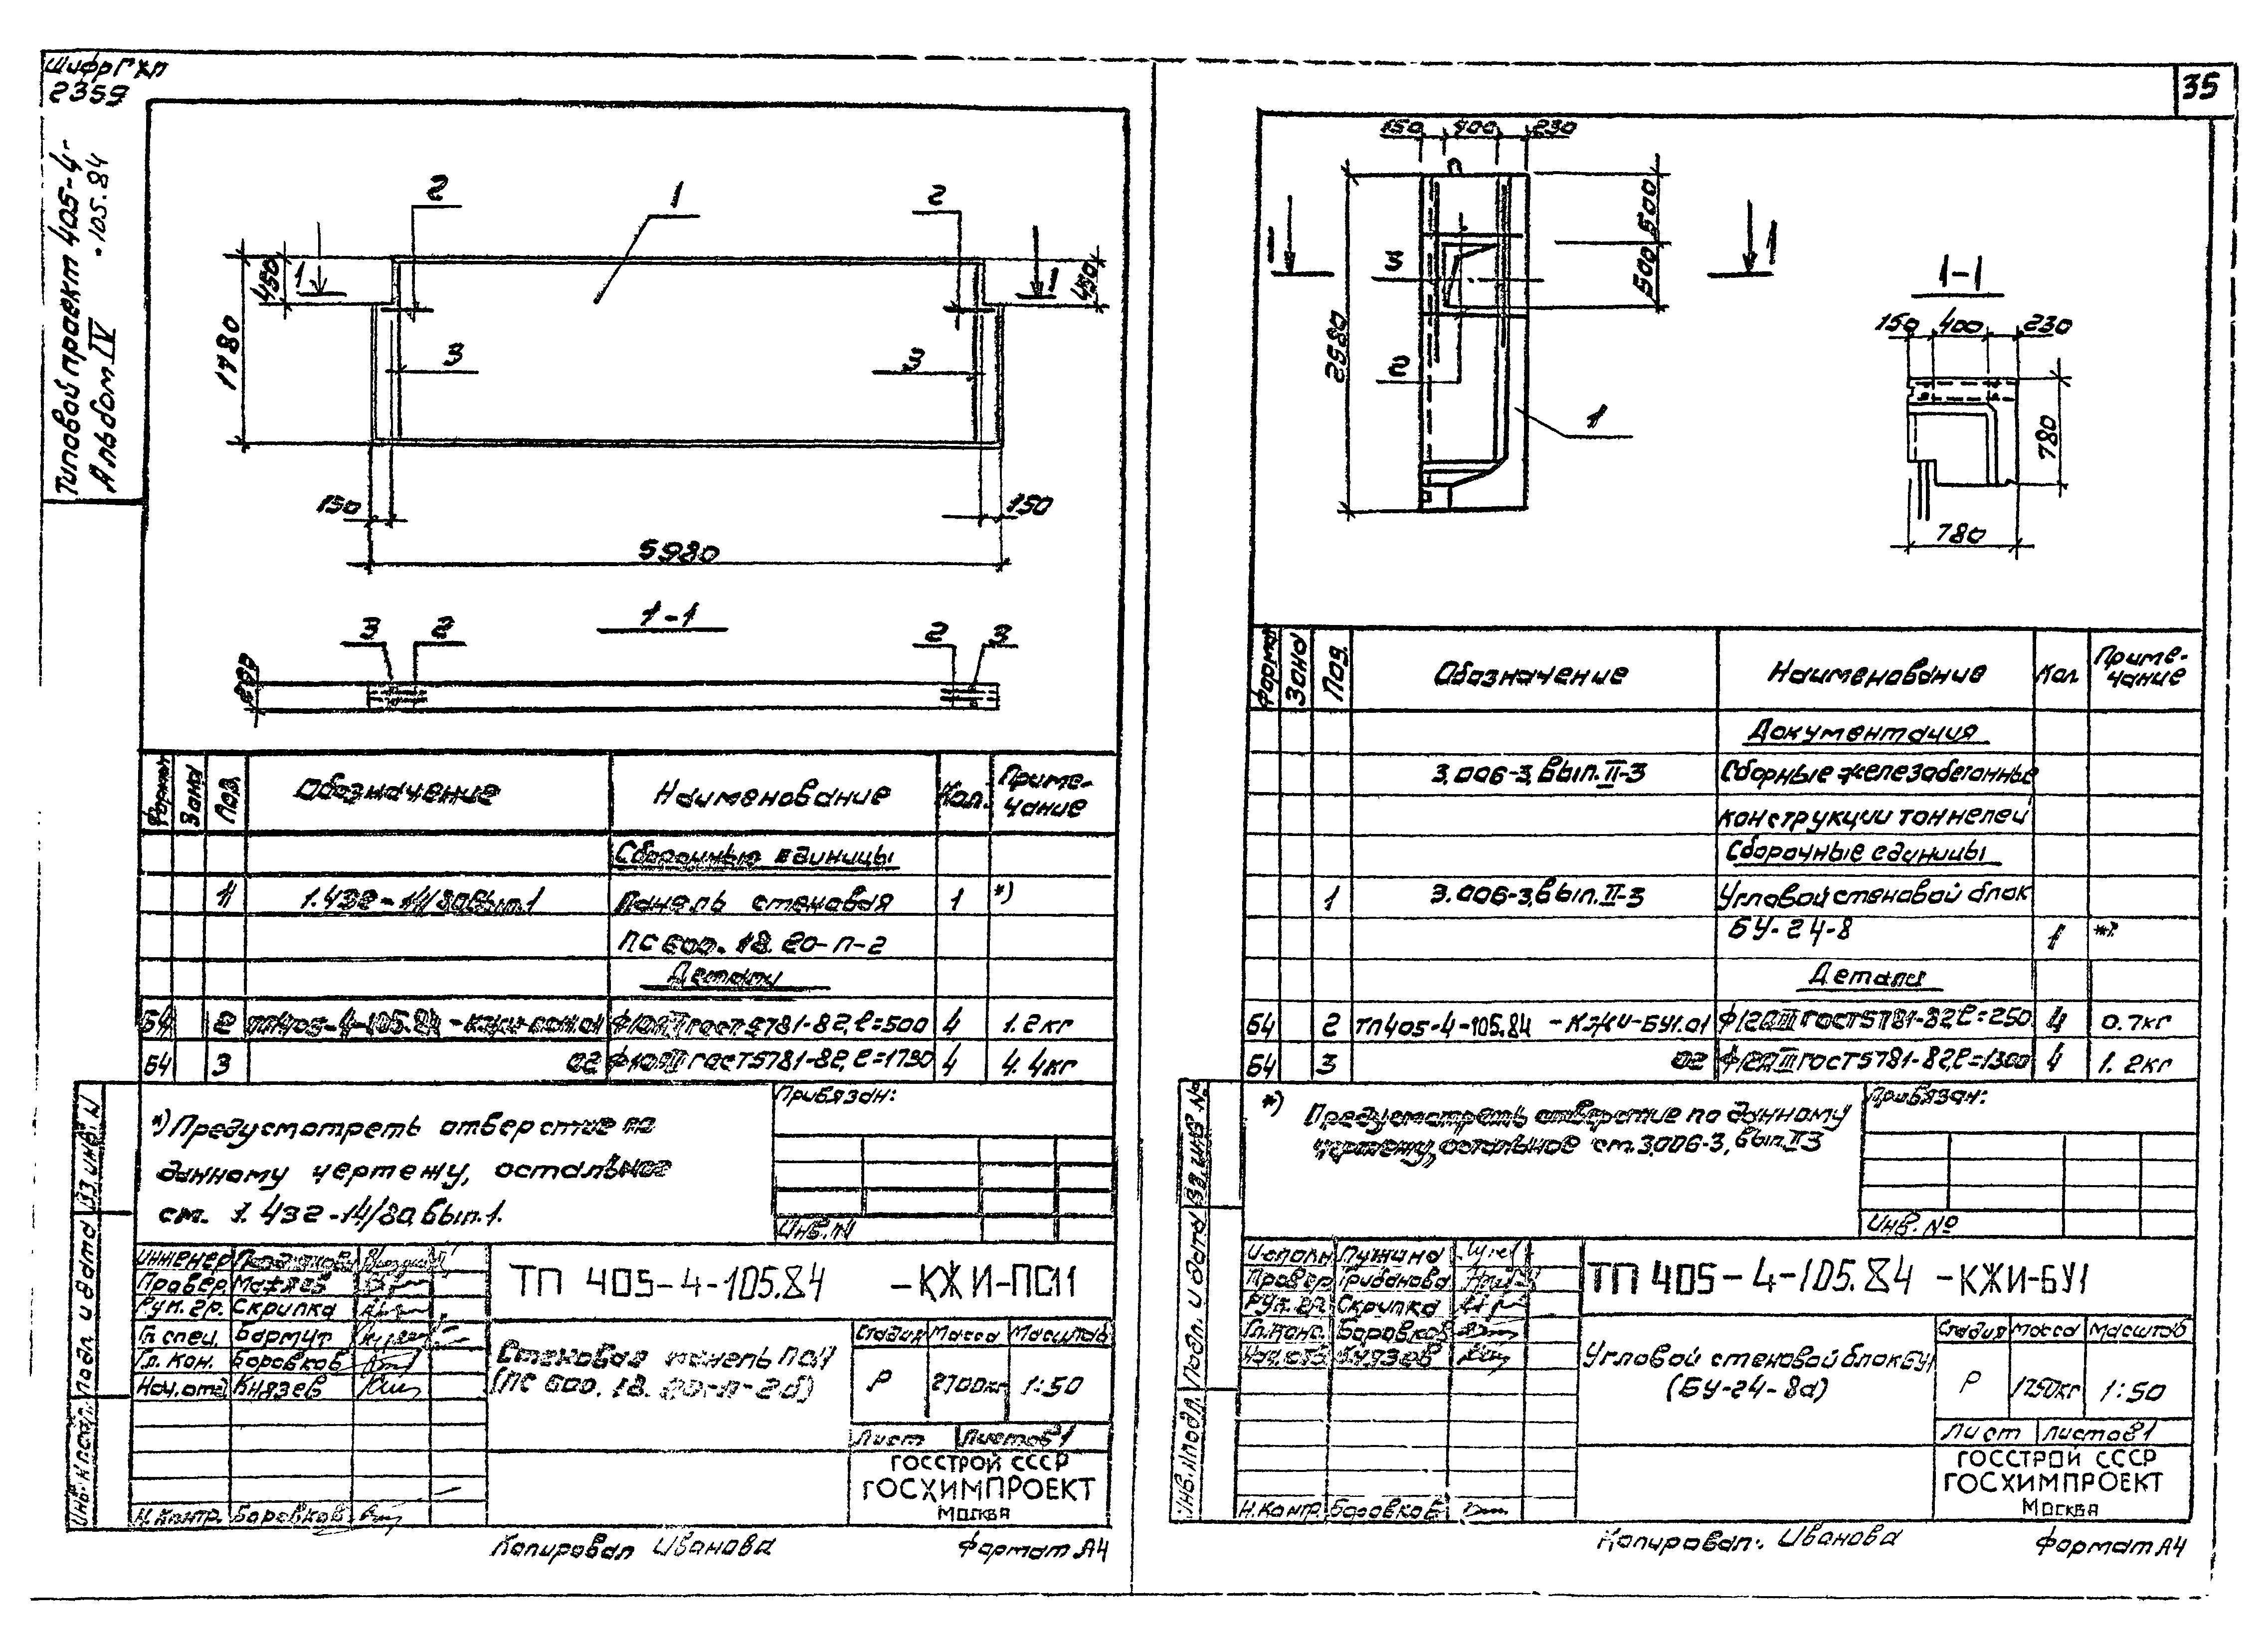 Шифр ГХП
2359
Типовой проект 405-4-105.84
Альбом IV
35
2
1
2
450
1
1
450
1780
3
3
150
150
5980
1-1
3
2
2
3
Формат
Зона
Поз.
Обозначение
Наименование
Кол.
Приме-
чание
Сборочные единицы
1
1.432-14/80 вып.1
Панель стеновая
1
*)
ПС 600.18.20-П-2
Детали
БЧ
2
4
1.2кг
БЧ
3
02
ГОСТ5781-82, ℓ=1730
4
4.4кг
*) Предусмотреть отверстие по
данному чертежу, остальное
см. 1.432-14/80, вып.1.
Привязан:
Инв.N
Инженер
Провер.
Рук. гр.
Скрипка
Гл. спец.
Бормут
Гл. Кон.
Боровков
Нач.отд
Князев
Н.Контр.
Боровков
ТП 405-4-105.84 -КЖИ-ПС11
Стеновая панель ПС11
(ПС 600.18.20-П-2б)
Стадия
Масса
Масштаб
Р
2700кг
1:50
Лист
Листов 1
ГОССТРОЙ СССР
ГОСХИМПРОЕКТ
Москва
Копировал Иванова
Формат А4
Инв.N подл.
Подл. и дата
Вз. инв. N
150
400
230
500
500
2980
3
2
1
1
1-1
150
400
230
780
780
Формат
Зона
Поз.
Обозначение
Наименование
Кол.
Приме-
чание
Документация
3.006-3, вып. II-3
Сборные железобетонные
конструкции тоннелей
Сборочные единицы
1
3.006-3, вып. II-3
Угловой стеновой блок
БУ-24-8
1
*)
Детали
БЧ
2
ТП405-4-105.84 -КЖИ-БУ1.01
ф12АIII ГОСТ5781-82, ℓ=250
4
0.7кг
БЧ
3
02
ф12АIII ГОСТ5781-82, ℓ=1300
4
1.2кг
*) Предусмотреть отверстие по данному
чертежу, остальное см. 3.006-3, вып. II-3
Привязан:
Инв. №
Исполн.
Пужина
Провер.
Грибанова
Рук. гр.
Скрипка
Гл.конс.
Боровков
Нач.отд.
Князев
Н.Контр.
Боровков
ТП 405-4-105.84 -КЖИ-БУ1
Угловой стеновой блок БУ1
(БУ-24-8а)
Стадия
Масса
Масштаб
Р
1250кг
1:50
Лист
Листов 1
ГОССТРОЙ СССР
ГОСХИМПРОЕКТ
Москва
Копировал: Иванова
Формат А4
Инв.Nподл.
Подл. и дата
Вз.инв №